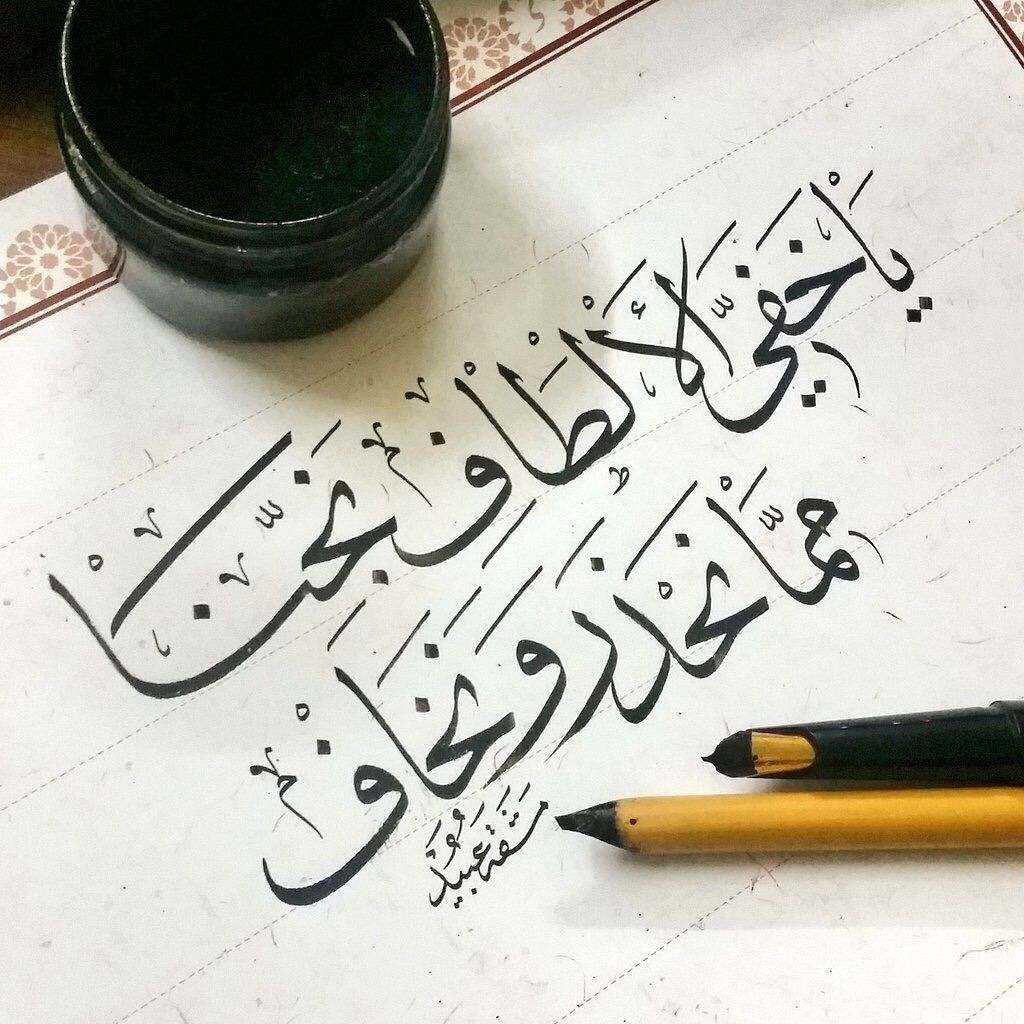 يَا خَفِيَّ الْأَلْطَافْ نَجِّنَا
مِمَّا نَحْذَرُ وَنَخَافْ
مشقه عبيد